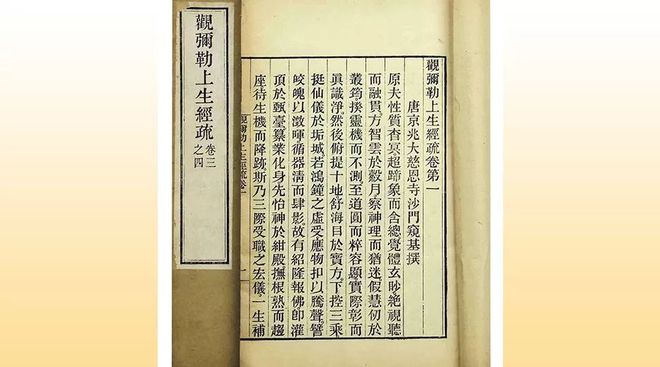 觀彌勒上生經疏卷第一
唐京兆大慈恩寺沙門窺基撰
原夫性質杳冥超蹄象而含總覺體玄眇絶視聽
而融貫方智雲於縠月察神理而猶迷假慧仞於
叢筠揆靈機而不測至道圓而粹容顯實際彰而
眞識淨然後俯提十地舒海目於寶方下控三乘
挺仙儀於垢城若鴻鐘之虛受應物扣以騰聲譬
皎魄以澂暉循器淸而肆影故有紹隆報佛卽灌
頂於甄臺纂業化身先怡神於紺殿撫根熟而趨
座待生機而降跡斯乃三際受職之宏儀一生補
觀彌勒上生經疏卷一
一
觀彌勒上生經疏
卷三
之四